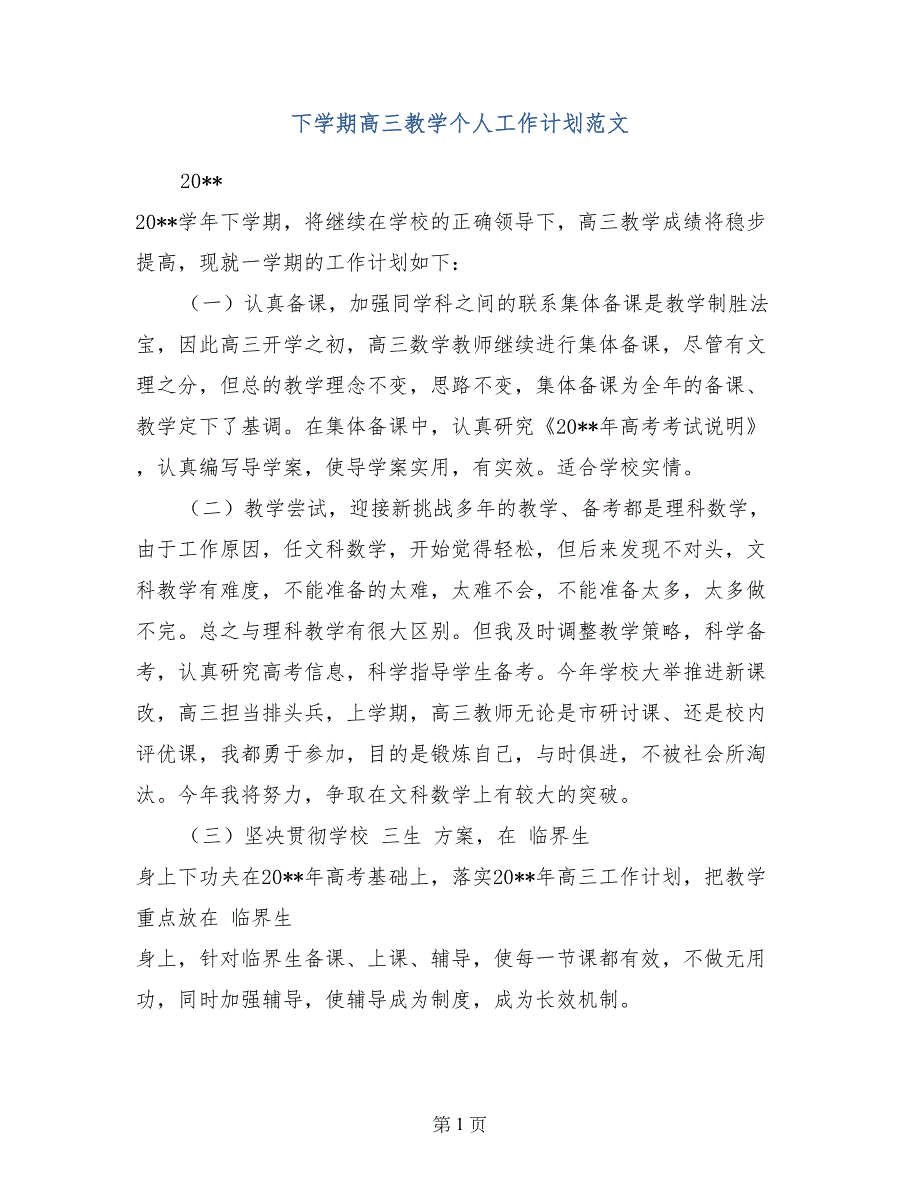 下学期高三教学个人工作计划范文
20**
20**学年下学期，将继续在学校的正确领导下，高三教学成绩将稳步
提高，现就一学期的工作计划如下：
（一）认真备课，加强同学科之间的联系集体备课是教学制胜法
宝，因此高三开学之初，高三数学教师继续进行集体备课，尽管有文
理之分，但总的教学理念不变，思路不变，集体备课为全年的备课、
教学定下了基调。在集体备课中，认真研究《20**年高考考试说明》
，认真编写导学案，使导学案实用，有实效。适合学校实情。
（二）教学尝试，迎接新挑战多年的教学、备考都是理科数学，
由于工作原因，任文科数学，开始觉得轻松，但后来发现不对头，文
科教学有难度，不能准备的太难，太难不会，不能准备太多，太多做
不完。总之与理科教学有很大区别。但我及时调整教学策略，科学备
考，认真研究高考信息，科学指导学生备考。今年学校大举推进新课
改，高三担当排头兵，上学期，高三教师无论是市研讨课、还是校内
评优课，我都勇于参加，目的是锻炼自己，与时俱进，不被社会所淘
汰。今年我将努力，争取在文科数学上有较大的突破。
（三）坚决贯彻学校 三生 方案，在 临界生
身上下功夫在20**年高考基础上，落实20**年高三工作计划，把教学
重点放在 临界生
身上，针对临界生备课、上课、辅导，使每一节课都有效，不做无用
功，同时加强辅导，使辅导成为制度，成为长效机制。
第 1 页